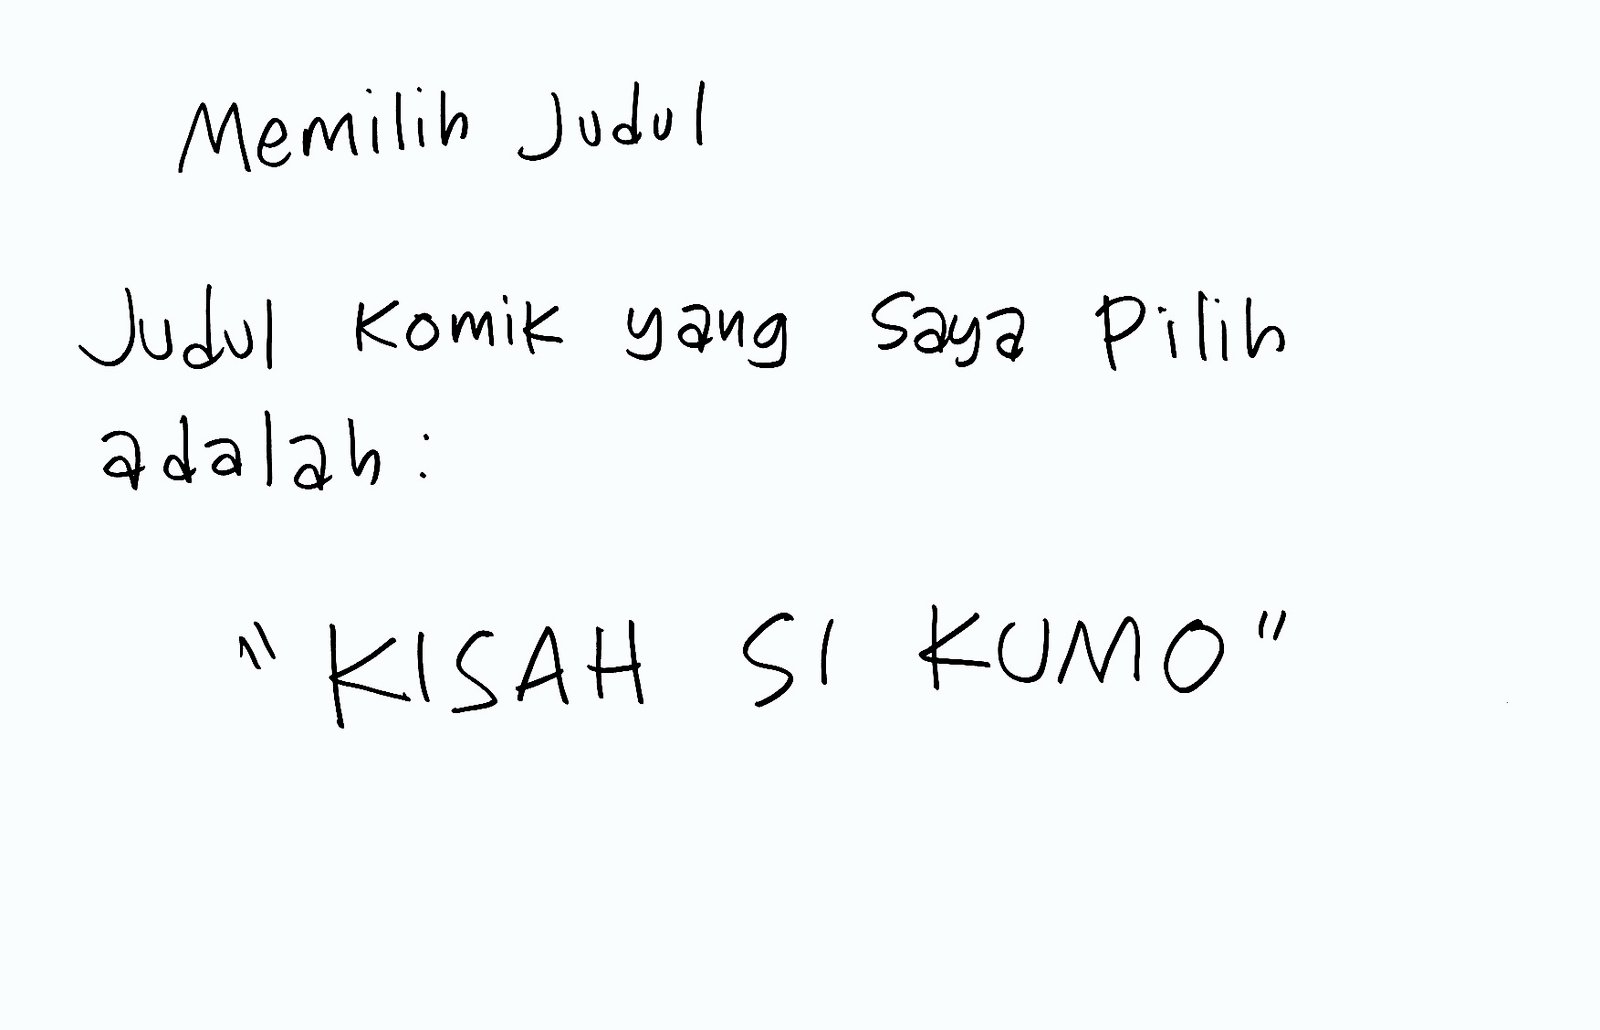 Memilih Judul
Judul Komik yang Saya Pilih
adalah:
"KISAH SI KUMO"